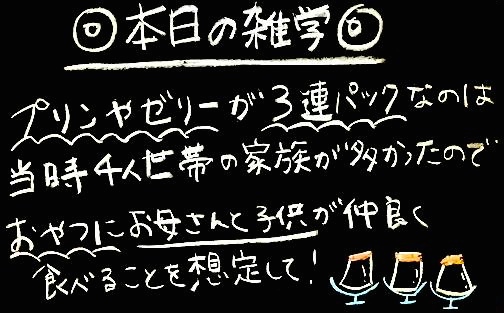 ◎本日の雑学◎
プリンやゼリーが3連パックなのは
当時4人世帯の家族が多かったので
おやつにお母さんと子供が仲良く
食べることを想定して!